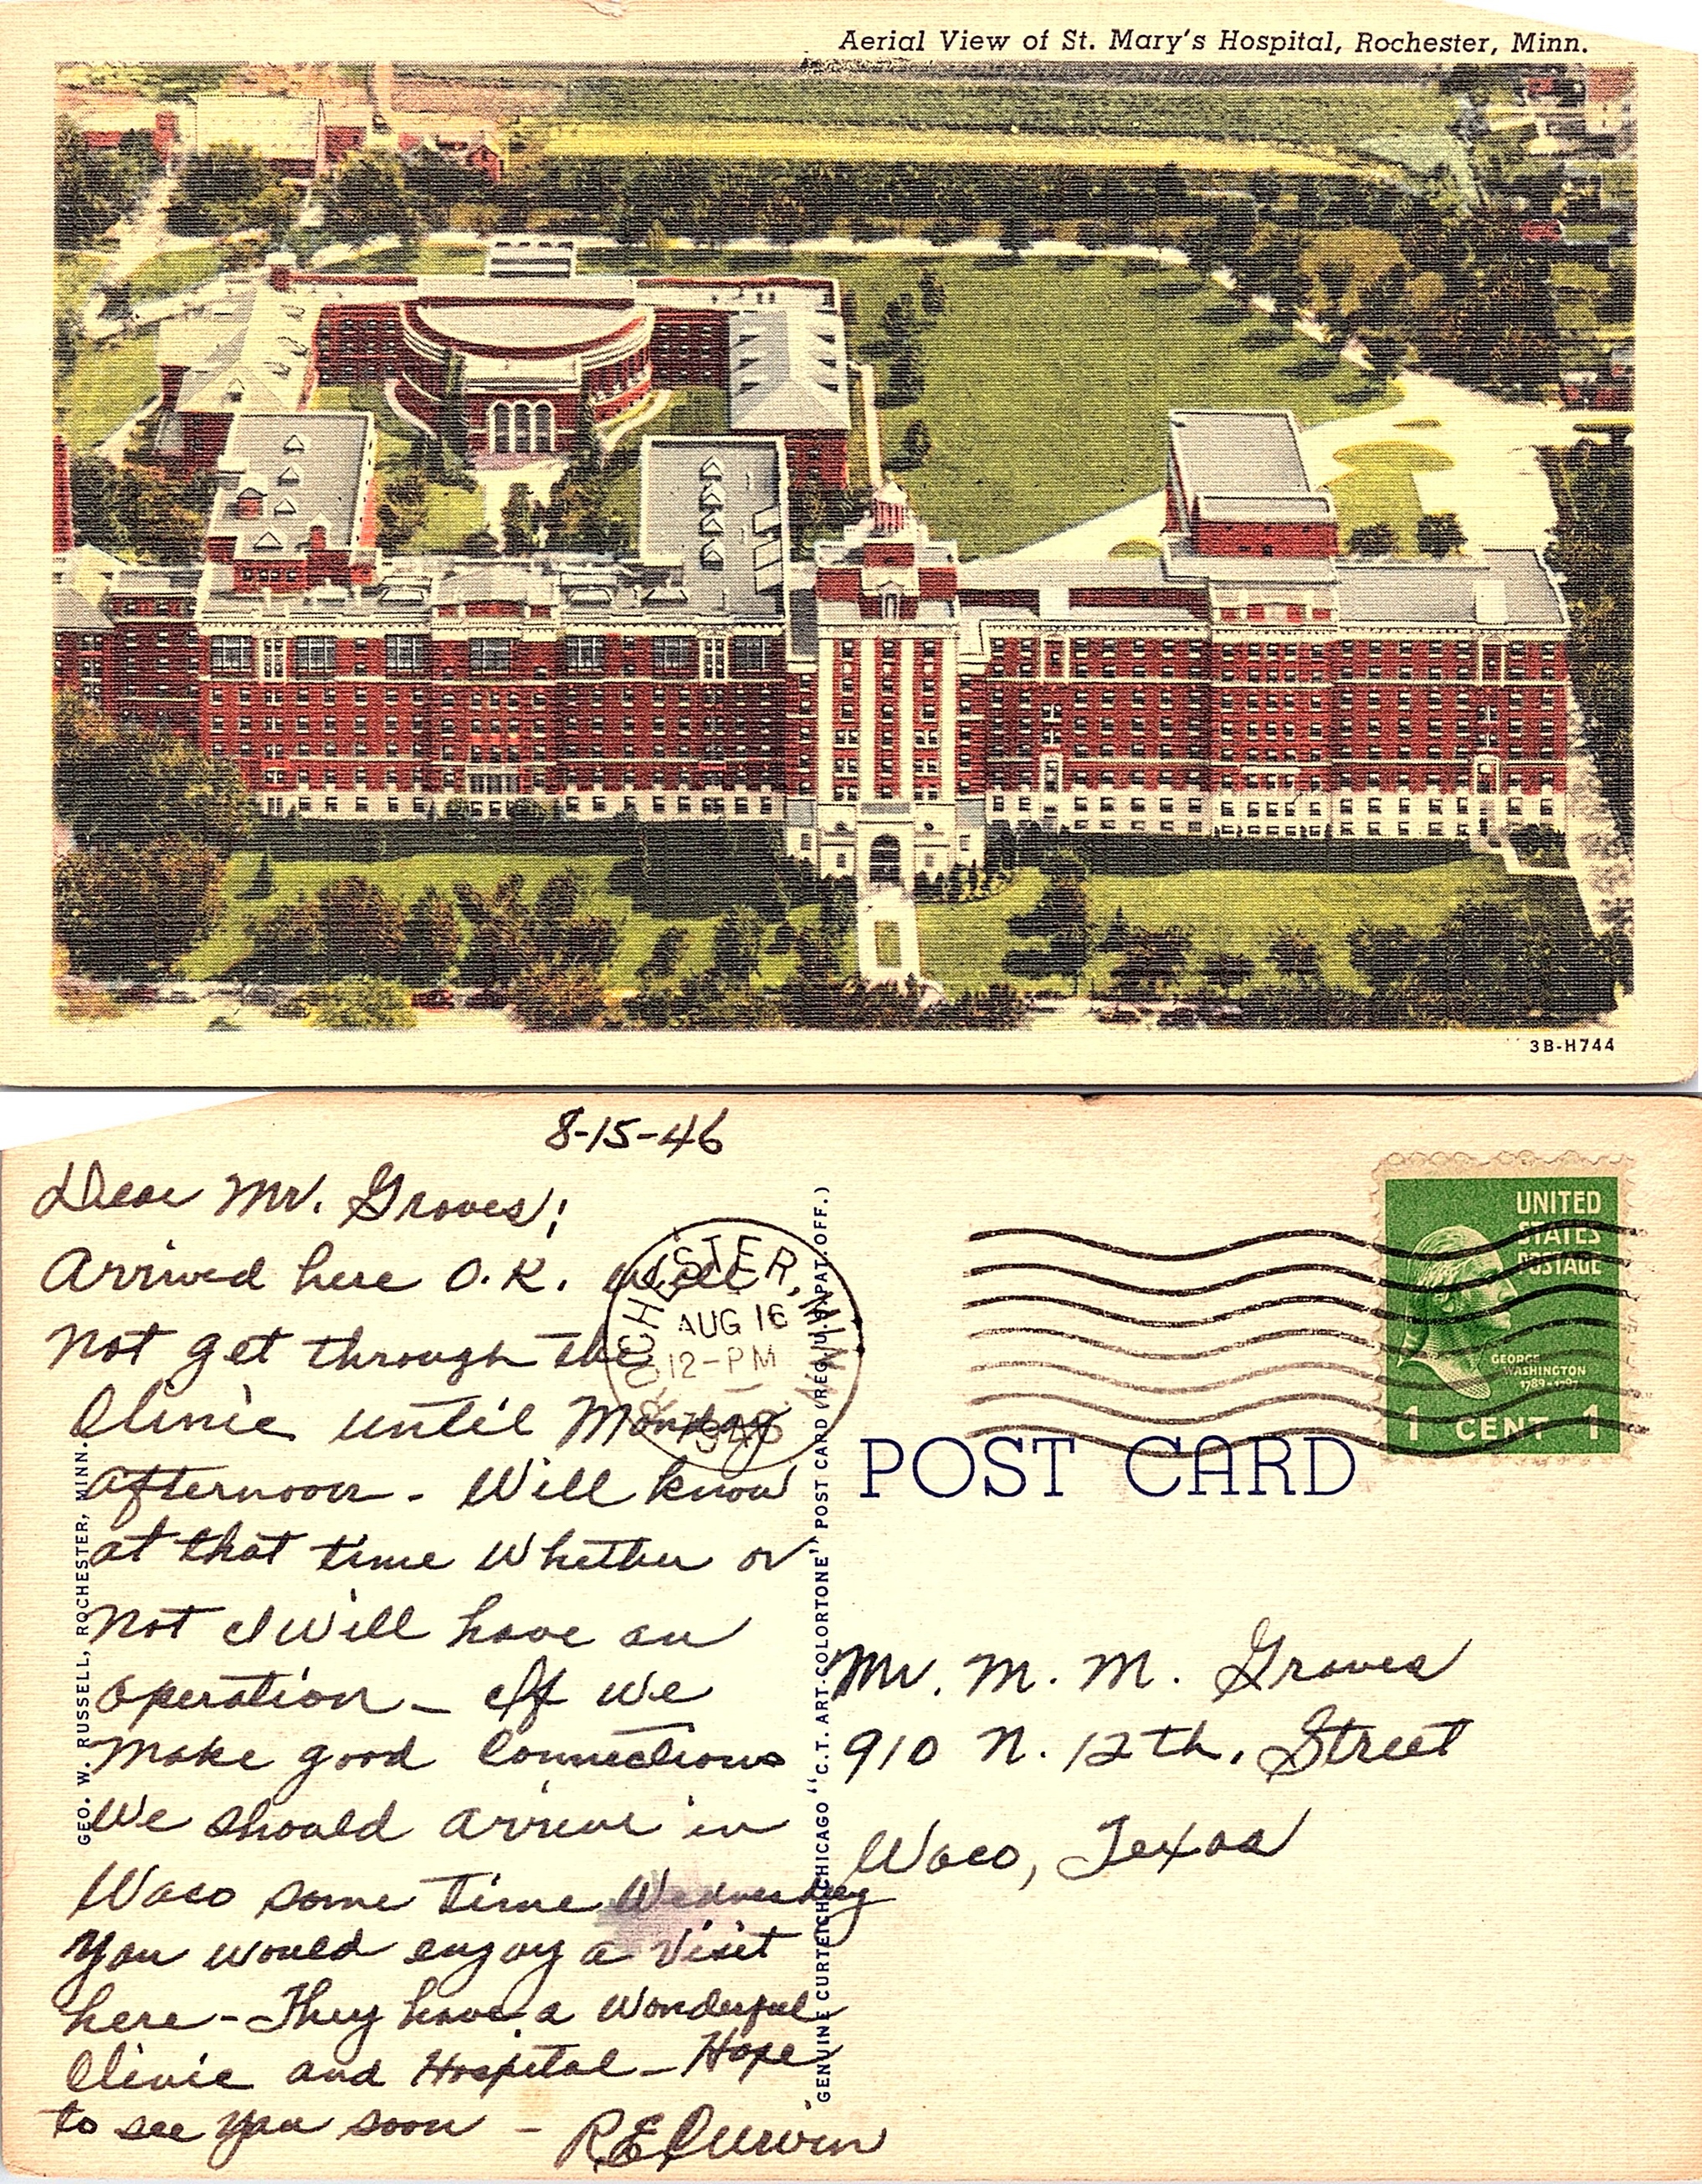 Aerial View of St. Mary's Hospital, Rochester, Minn.
3B-H744
8-15-46
Dear Mr. Graves:
Arrived here O.K. will
not get through the
Clinic until Monday
afternoon - Will know
at that time whether or
not I will have an
operation - If we
make good connections
we should arrive in
Waco some time Wednesday
You would enjoy a visit
here - They have a wonderful
Clinic and Hospital - Hope
to see you soon -
R.E.
GEO. W. RUSSELL, ROCHESTER, MINN.
GENUINE CURTEICH-CHICAGO "C.T. ART-COLORTONE" POST CARD (REG. U.S. PAT. OFF.)
ROCHESTER, MINN.
AUG 16
12-PM
1946
UNITED
STATES
POSTAGE
GEORGE
WASHINGTON
1789-1797
1 CENT 1
POST CARD
Mr. M. M. Graves
910 N. 12th. Street
Waco, Texas